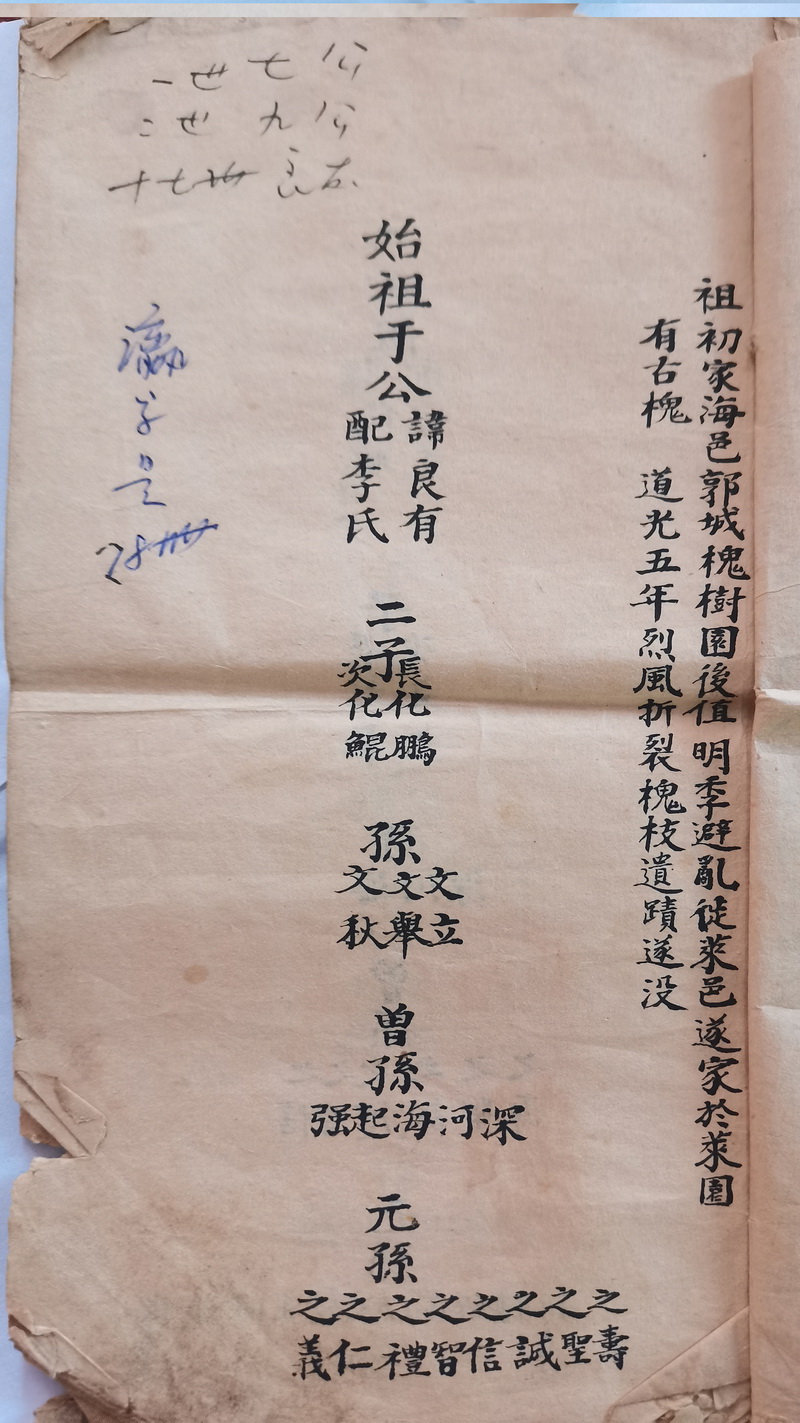 祖初家海邑郭城槐樹園後值明季避亂徙萊邑遂家於萊園
有古槐 道光五年烈風折裂槐枝遺蹟遂没
始祖于公
諱良有
配李氏
二子
長化鵬
次化鯤
孫
文立
文舉
文秋
曾孫
深河海起强
元孫
之壽
之聖
之誠
之信
之智
之禮
之仁
之義
一世 七 公
二世 九 公
十七世 良右